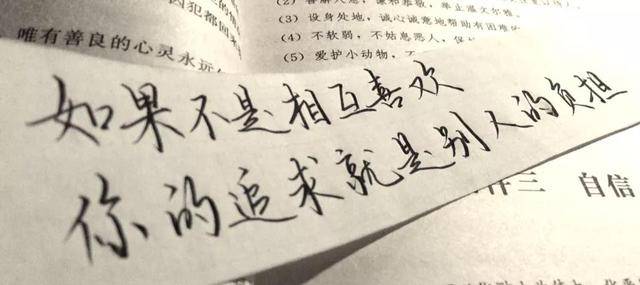 唯有善良的心灵永远
(3) 设身处地，诚心诚意地帮助有困难的
(4) 不软弱，不姑息恶人，
(5) 爱护小动物，
如果不是相互喜欢
你的追求就是别人的负担
三 自信